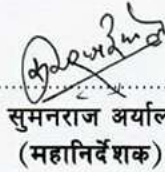 सुमनराज अर्याल
(महानिर्देशक)